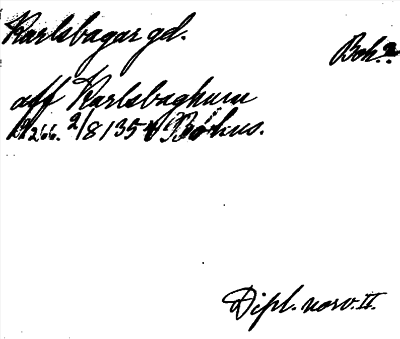 Karlsbagar gd.
Boh.?
aff Karlsbaghum
266. 2/8 135 Bohus.
Dipl. norv. II.